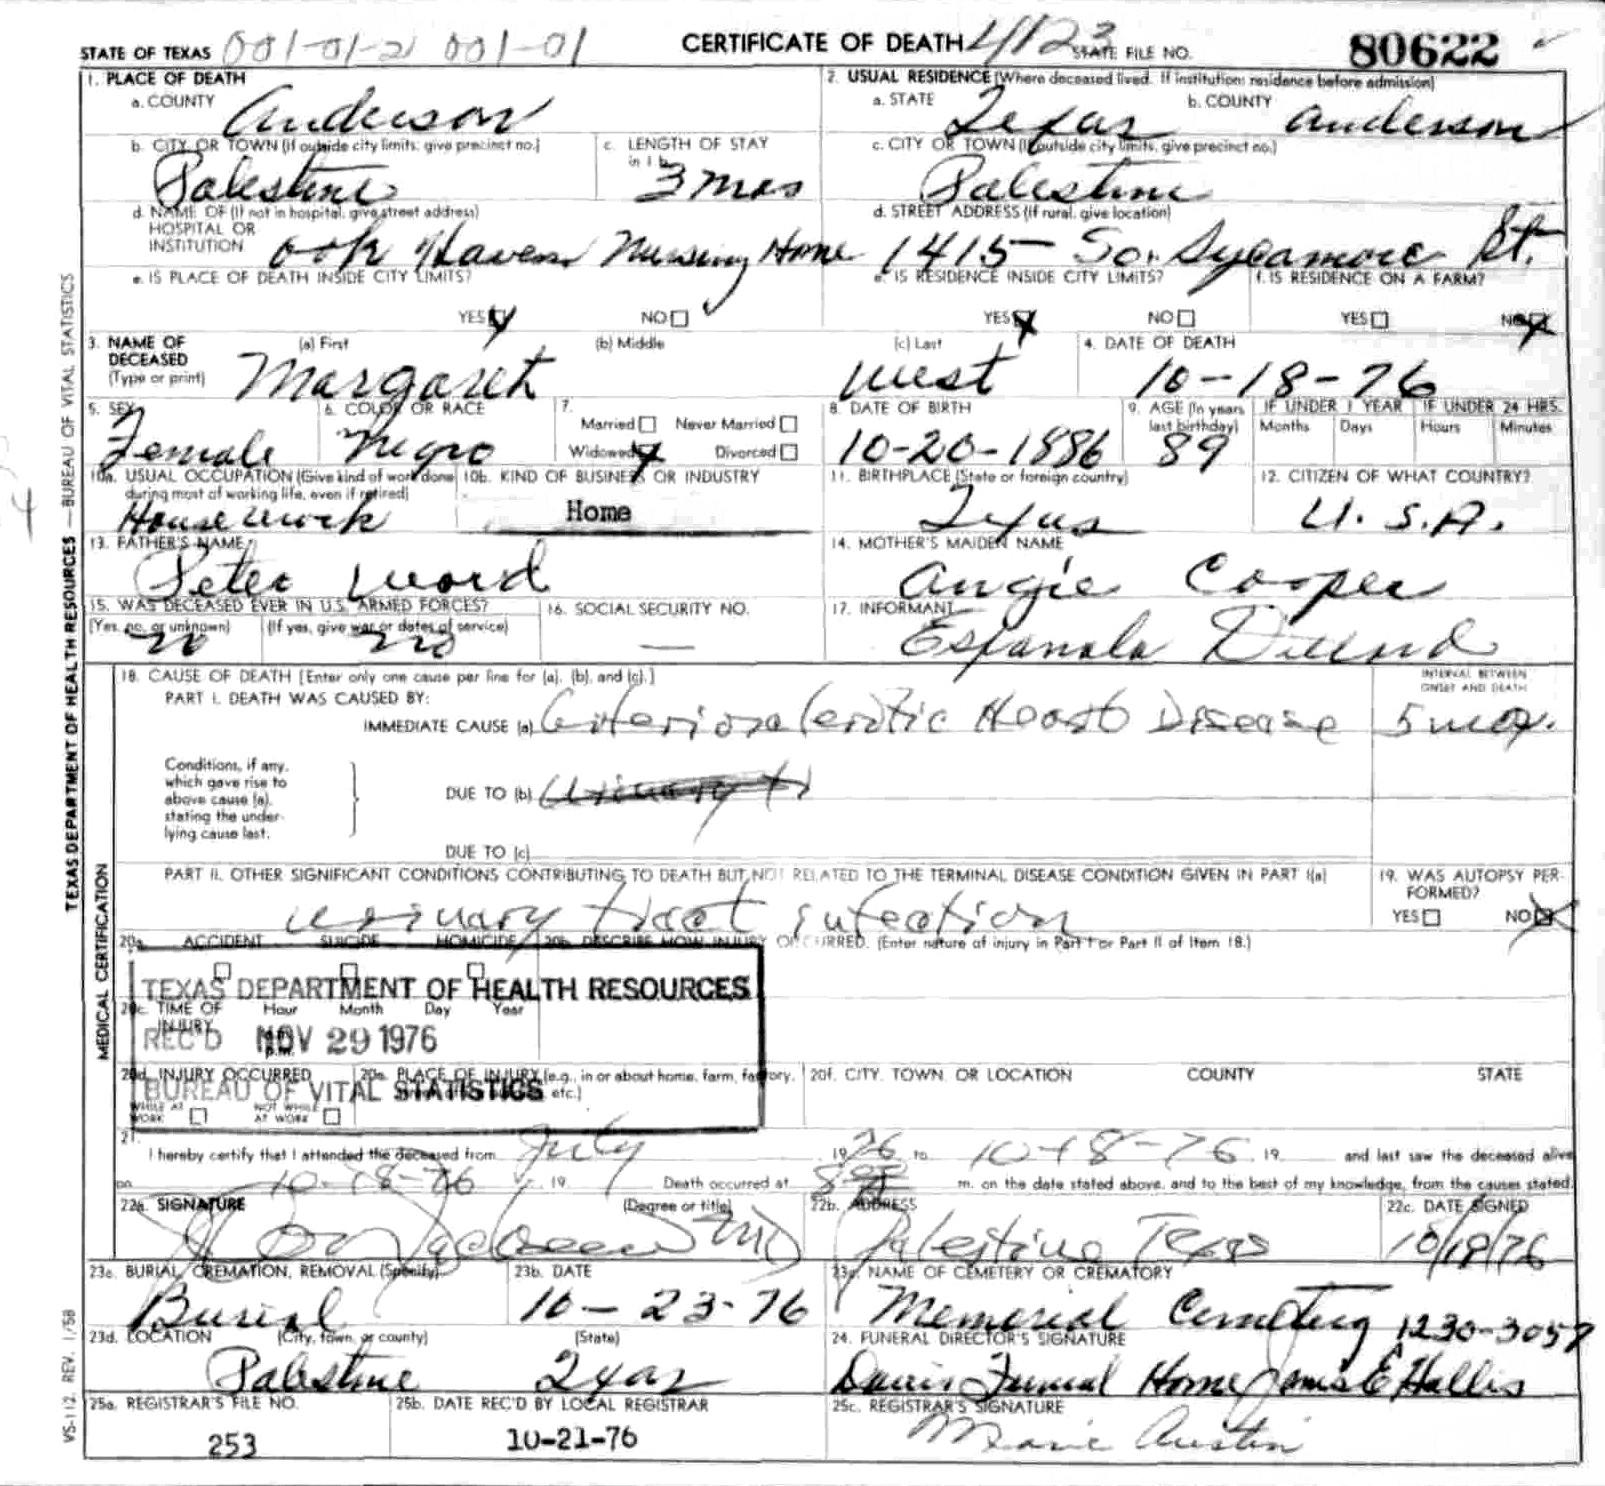 STATE OF TEXAS 001-01-2 001-01 CERTIFICATE OF DEATH 4123 STATE FILE NO. 80622
1. PLACE OF DEATH
a. COUNTY Anderson
2. USUAL RESIDENCE (Where deceased lived. If institution: residence before admission)
a. STATE Texas b. COUNTY Anderson
b. CITY OR TOWN (If outside city limits, give precinct no.) Palestine
c. LENGTH OF STAY in 1 b. 3 mos
c. CITY OR TOWN (If outside city limits, give precinct no.) Palestine
d. NAME OF (If not in hospital, give street address) HOSPITAL OR INSTITUTION Oak Haven Nursing Home
d. STREET ADDRESS (If rural, give location) 1415 So. Sycamore St.
e. IS PLACE OF DEATH INSIDE CITY LIMITS? YES NO
e. IS RESIDENCE INSIDE CITY LIMITS? YES NO
f. IS RESIDENCE ON A FARM? YES NO
3. NAME OF DECEASED (Type or print) (a) First Margaret (b) Middle (c) Last West
4. DATE OF DEATH 10-18-76
5. SEX Female
6. COLOR OR RACE Negro
7. Married Never Married Widowed Divorced
8. DATE OF BIRTH 10-20-1886
9. AGE (In years last birthday) 89 IF UNDER 1 YEAR Months Days IF UNDER 24 HRS. Hours Minutes
10a. USUAL OCCUPATION (Give kind of work done during most of working life, even if retired) House Work
10b. KIND OF BUSINESS OR INDUSTRY Home
11. BIRTHPLACE (State or foreign country) Texas
12. CITIZEN OF WHAT COUNTRY? U.S.A.
13. FATHER'S NAME Peter Word
14. MOTHER'S MAIDEN NAME Angie Cooper
15. WAS DECEASED EVER IN U.S. ARMED FORCES? (Yes, no, or unknown) no (If yes, give war or dates of service) no
16. SOCIAL SECURITY NO. —
17. INFORMANT Espanola
18. CAUSE OF DEATH [Enter only one cause per line for (a), (b), and (c).]
PART I. DEATH WAS CAUSED BY:
IMMEDIATE CAUSE (a) Heart Disease
INTERVAL BETWEEN ONSET AND DEATH 5 mos.
Conditions, if any, which gave rise to above cause (a), stating the underlying cause last.
DUE TO (b)
DUE TO (c)
PART II. OTHER SIGNIFICANT CONDITIONS CONTRIBUTING TO DEATH BUT NOT RELATED TO THE TERMINAL DISEASE CONDITION GIVEN IN PART I(a)
urinary tract infection
19. WAS AUTOPSY PERFORMED? YES NO
20a. ACCIDENT SUICIDE HOMICIDE
20b. DESCRIBE HOW INJURY OCCURRED. (Enter nature of injury in Part I or Part II of Item 18.)
TEXAS DEPARTMENT OF HEALTH RESOURCES
20c. TIME OF INJURY Hour Month Day Year
REC'D NOV 29 1976
20d. INJURY OCCURRED WHILE AT WORK NOT WHILE AT WORK
20e. PLACE OF INJURY (e.g., in or about home, farm, factory, etc.)
BUREAU OF VITAL STATISTICS
20f. CITY, TOWN, OR LOCATION COUNTY STATE
21. I hereby certify that I attended the deceased from July 1976 to 10-18-76, 19 and last saw the deceased alive
on 10-18-76, 19 Death occurred at m. on the date stated above, and to the best of my knowledge, from the causes stated.
22a. SIGNATURE (Degree or title) MD
22b. ADDRESS Palestine Texas
22c. DATE SIGNED 10/19/76
23a. BURIAL, CREMATION, REMOVAL (Specify) Burial
23b. DATE 10-23-76
23c. NAME OF CEMETERY OR CREMATORY Memorial Cemetery
23d. LOCATION (City, town, or county) Palestine (State) Texas
1230-3057
24. FUNERAL DIRECTOR'S SIGNATURE Davis Funeral Home James E Hallis
25a. REGISTRAR'S FILE NO. 253
25b. DATE REC'D BY LOCAL REGISTRAR 10-21-76
25c. REGISTRAR'S SIGNATURE Marie Austin
TEXAS DEPARTMENT OF HEALTH RESOURCES — BUREAU OF VITAL STATISTICS
MEDICAL CERTIFICATION
VS-112 REV. 1/58